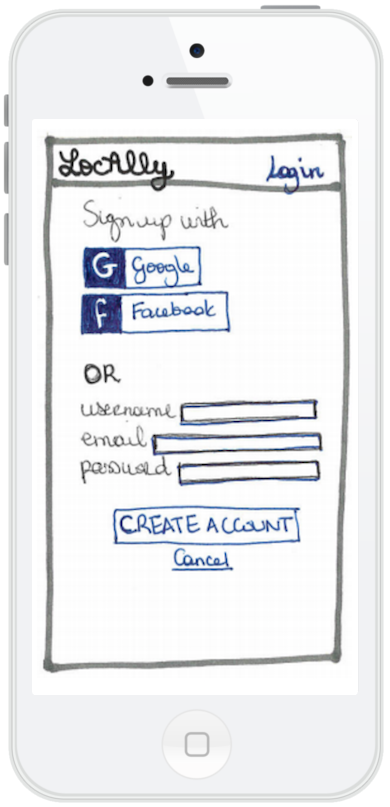 LocAlly Login
Sign up with
G Google
f Facebook
OR
username
email
password
CREATE ACCOUNT
Cancel